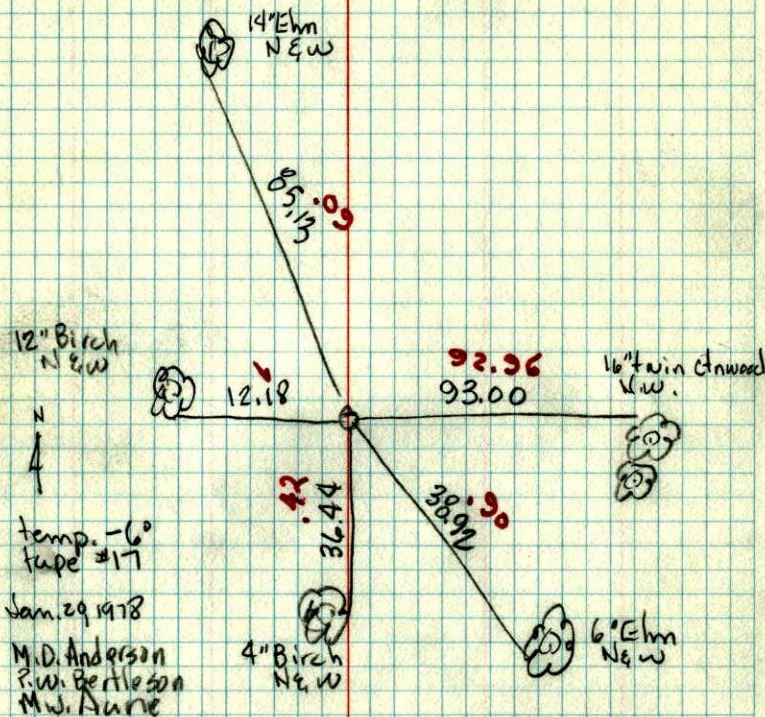 14" Elm
N & W
85.13
.09
12" Birch
N & W
12.18
92.96
93.00
16" twin ctnwood
N.W.
N
.42
36.44
38.92
.90
temp. -6°
tape #17
Jan. 29, 1978
M.D. Anderson
P.W. Bertleson
M.J. Aune
4" Birch
N & W
6" Elm
N & W